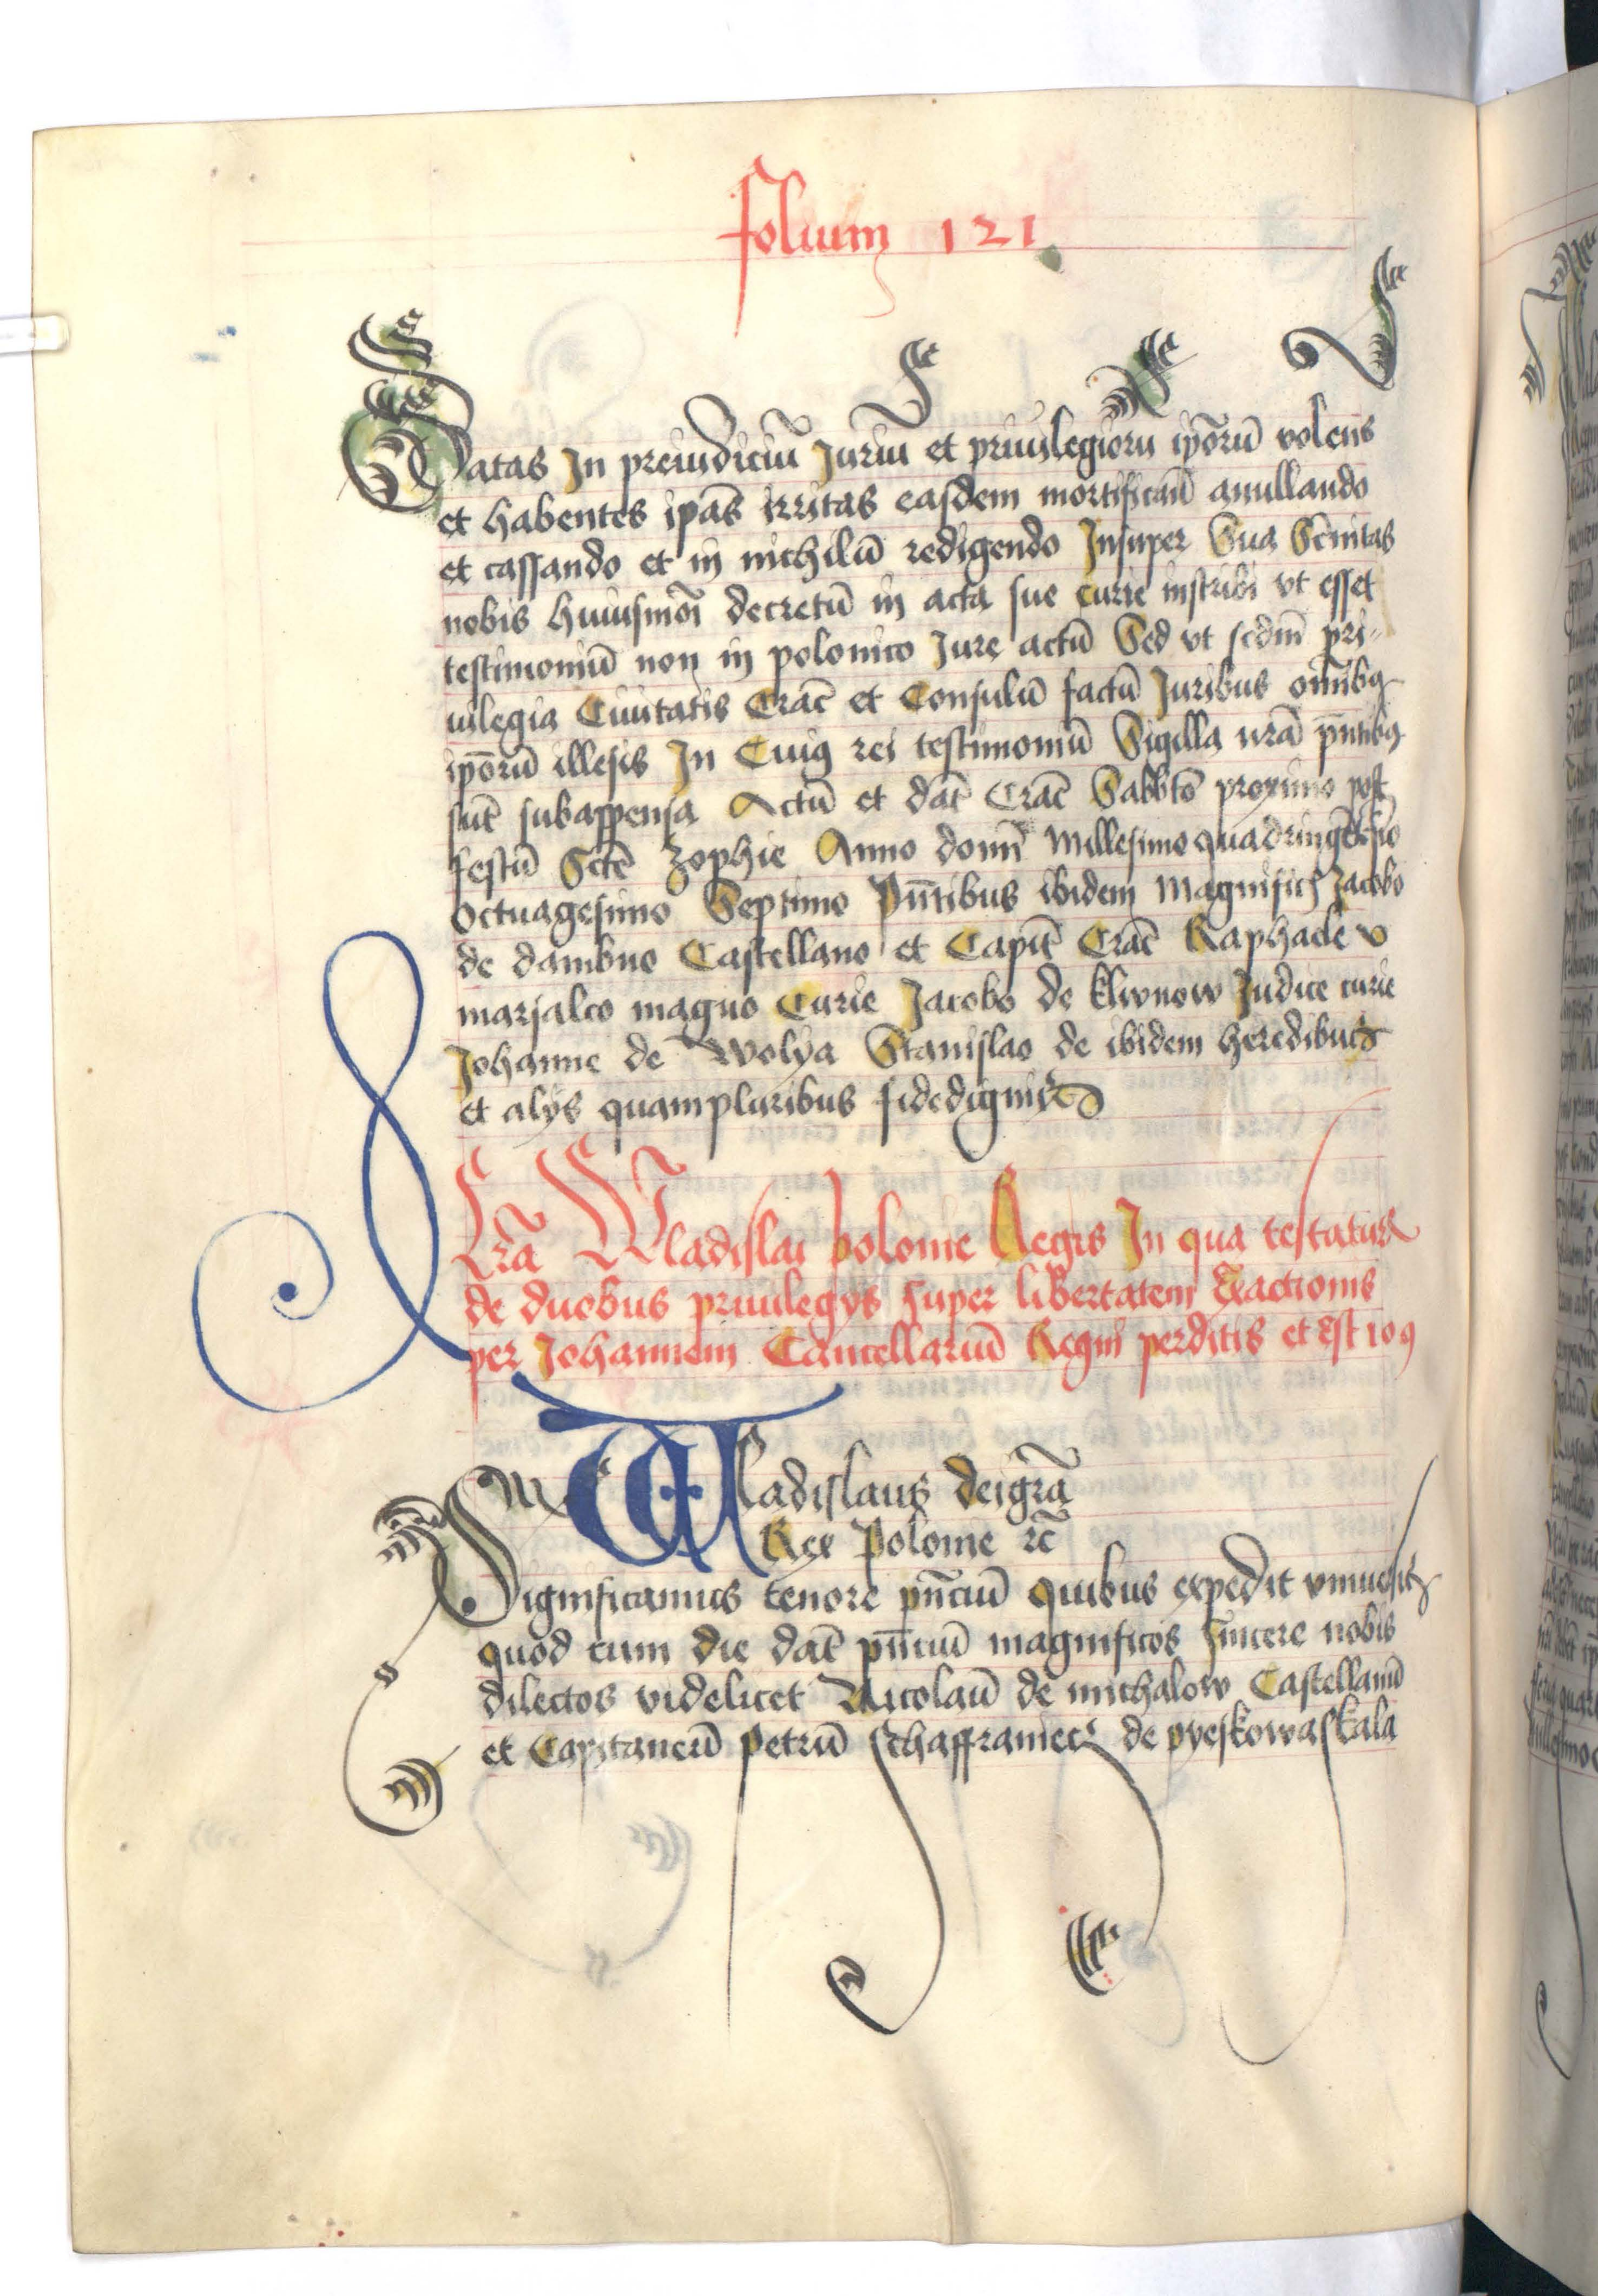 folium 121
Datas In preiudiciū Juriū et priuilegiorū ip̄orū volens
et habentes ip̄as irritas easdem mortificañ anullando
et cassando et in nichilū redigendo Insuper Sua Sc̄nitas
nobis huiusmōi decretū in acta sue curie inscribi vt esset
testimoniū non in polonico Jure actū Sed vt scdm̄ pri〃
uilegia Ciuitatis Crac̄ et Consulū factū Juribus om̄ibꝯ
ip̄orū illesis In Cuiꝯ rei testimoniū Sigilla nr̄a pn̄tibꝯ
sūt subappensa Actū et dat̄ Crac̄ Sabbto̅ proximo post
festū Sctē Zophie Anno domī Millesimo quadringētesīo
Octuagesimo Septimo Pn̄tibus ibidem Magnificis Jacobo
de dambno Castellano et Capit̄ Crac̄ Raphaele
marsalco magno Curie Jacobo de klwnow Judice curie
Johanne de Wolya Stanislao de ibidem heredibus
et alijs quampluribus fidedignis
Lr̄a Wladislai polonie Regis In qua testatur
de duobus priuilegijs super libertatem Exactionis
per Johannem Cancellariū Regni perditis et est 109
Wladislaus dei gr̄a
Rex Polonie ꝛc̄
Significamus tenore pn̄ciū quibus expedit vniuersis
quod cum die dat̄ pn̄ciū magnificos sincere nobis
dilectos videlicet Nicolaū de michalow Castellanū
et Capitaneū Petrū Schaffraniecz de pyeskowaskala